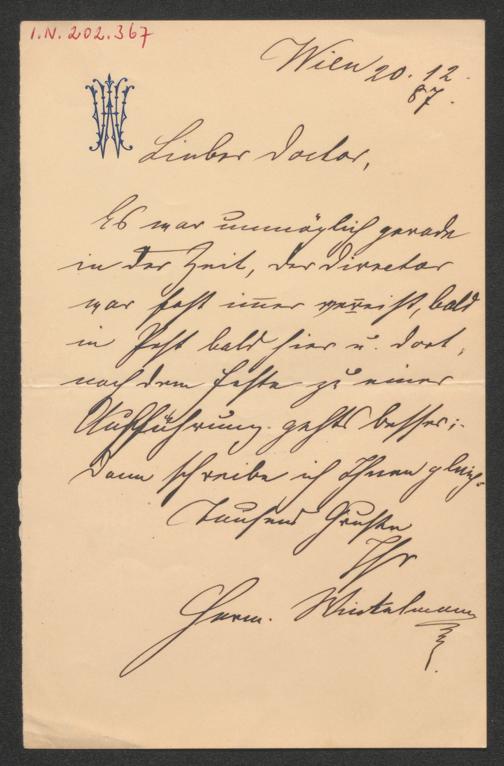 I.N. 202.367
Wien 20. 12.
87.
Lieber Doctor,
Es war unmöglich gerade
in der Zeit, der Director
war fast immer verreist, bald
in Pest bald hier u. dort,
nach dem Feste zu einer
Aufführung gehts besser;
dann schreibe ich Ihnen gleich.
Tausend Grüße
Ihr
Herm. Winkelmann